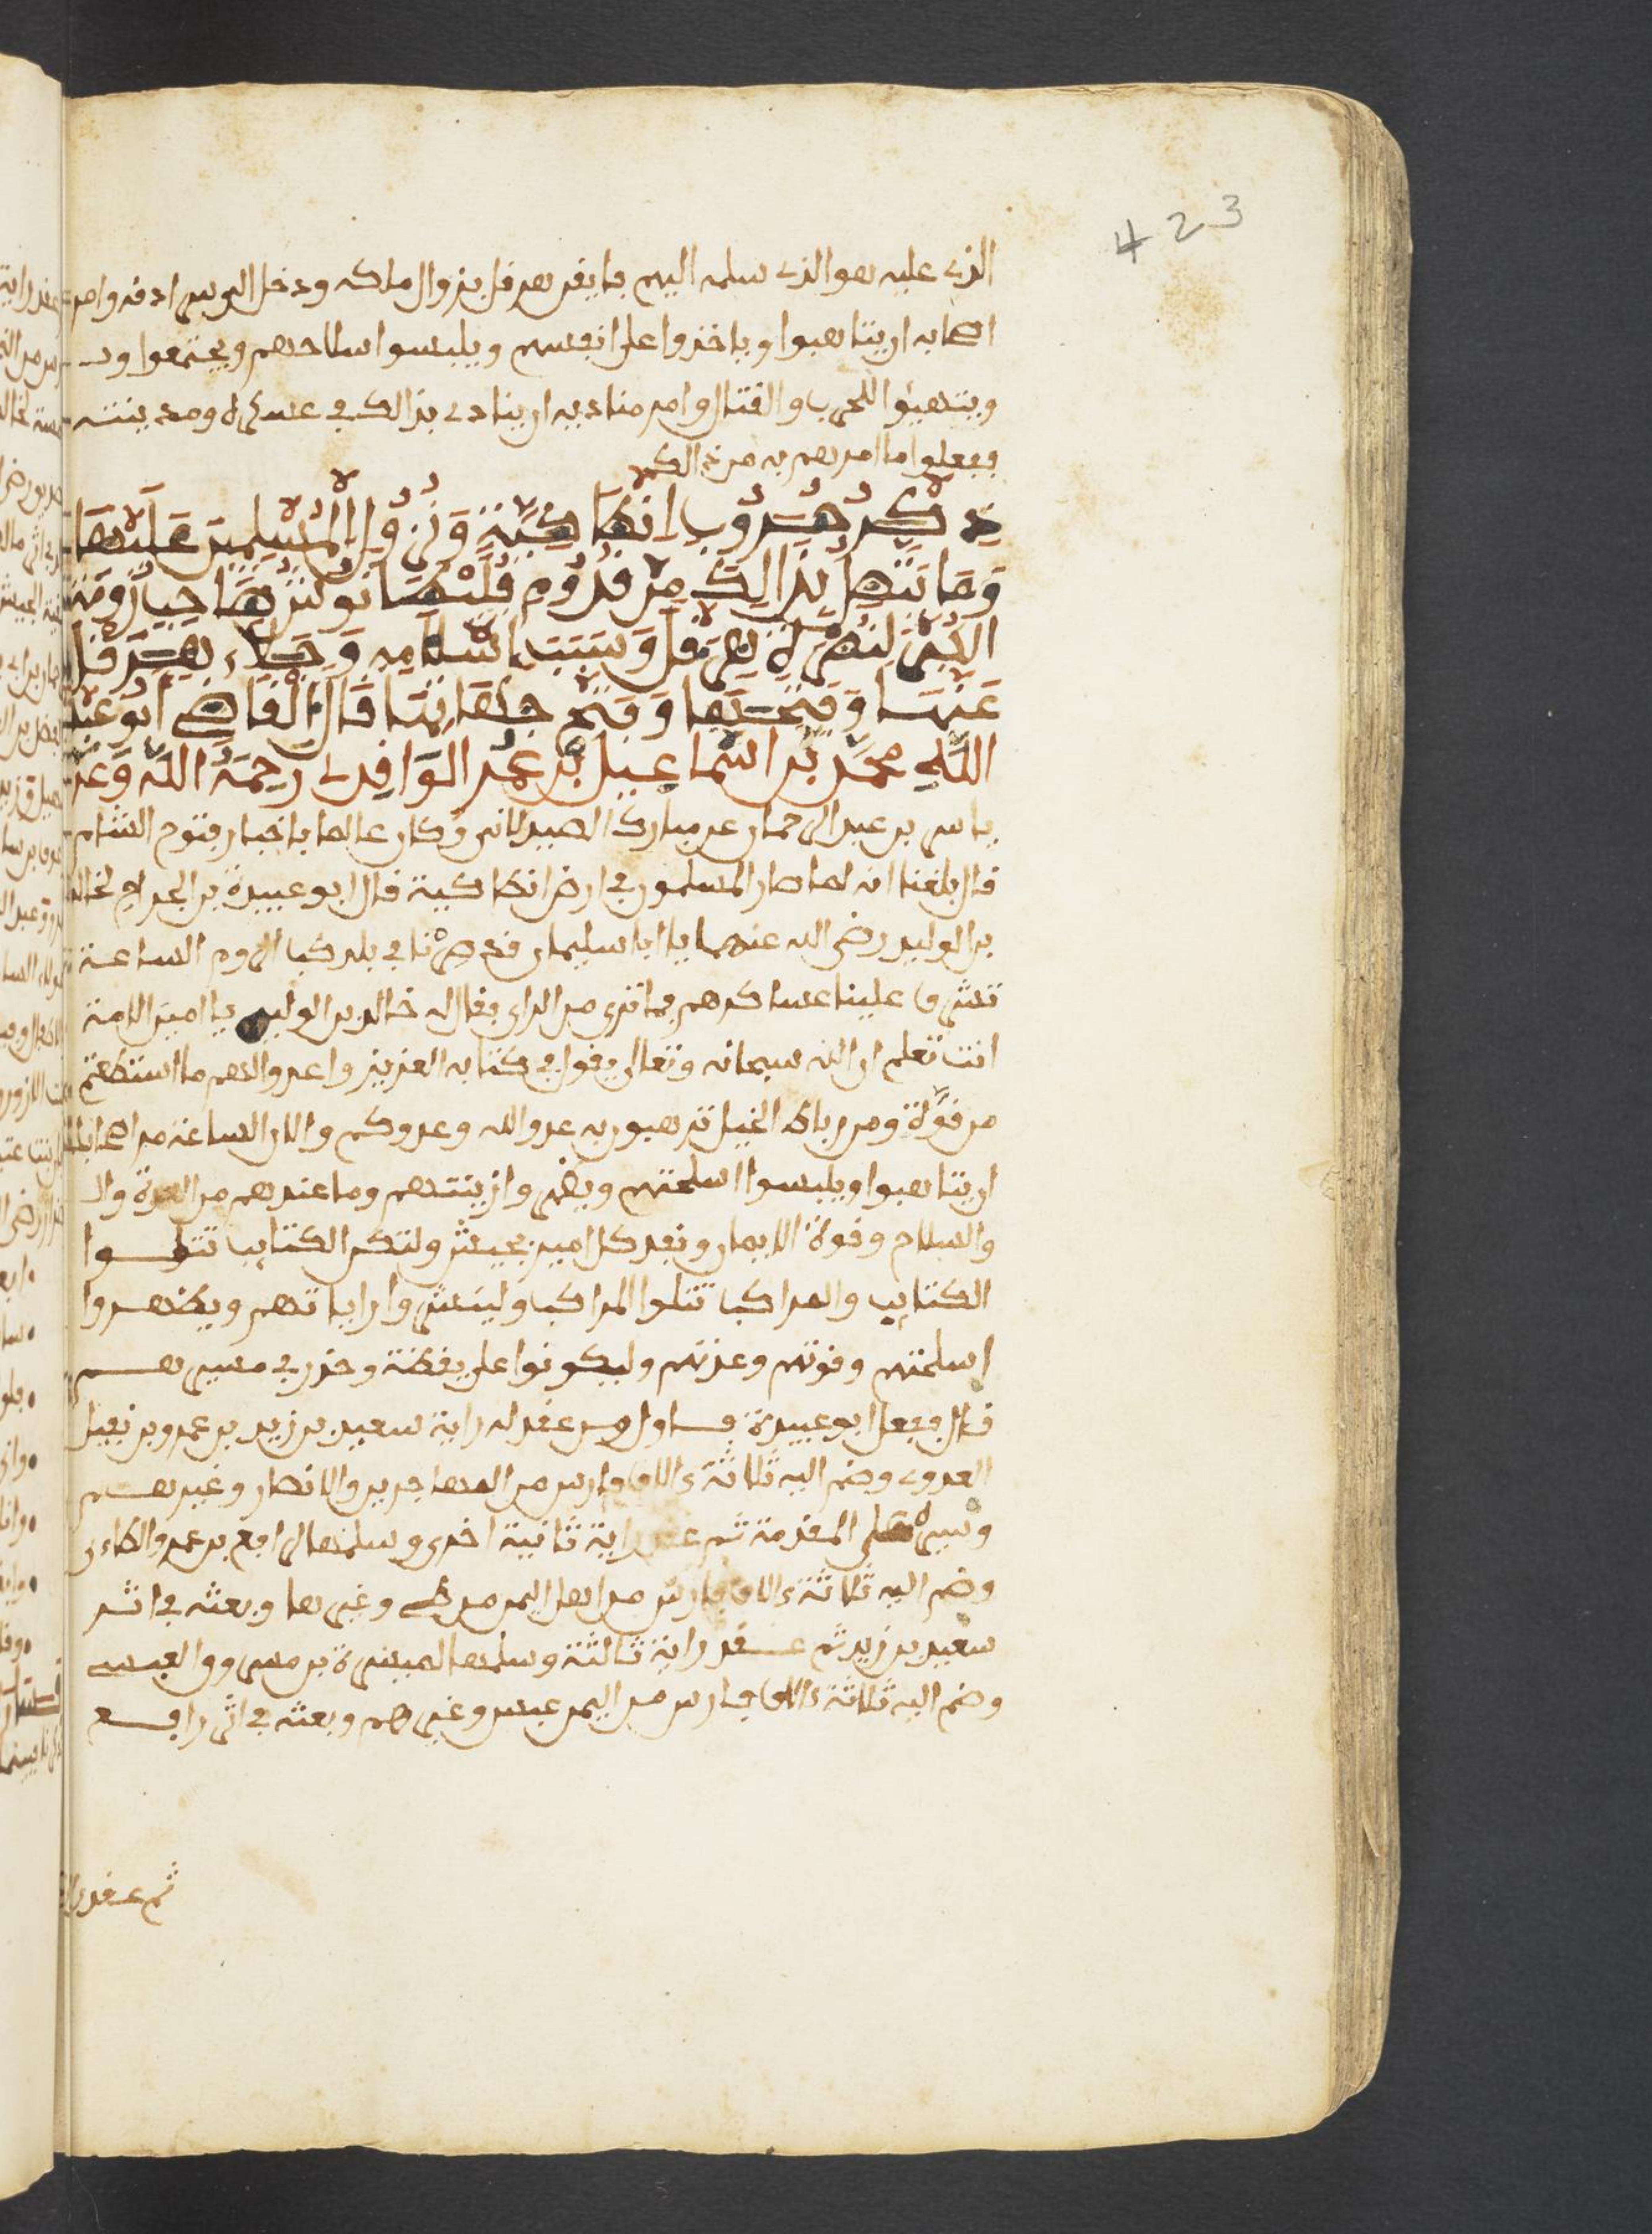 423
الذي عليه هو الذي سلمه اليهم فايقن هرقل بزوال ملكه ودخل البوس ادفه وامر
اصحابه ان يتاهبوا وياخذوا على انفسهم ويلبسوا سلاحهم ويجتمعوا و
ويتهيئوا للحرب والقتال وامر مناديه ان ينادي بذالك في عسكره ومدينته
ففعلوا ما امرهم به من ذالك
ذكر حروب انطاكية ونزول المسلمين عليها
وما بذالك من قدوم فلنطانوس رومة
لنصرة هرقل وسبب اسلامه وجلاء هرقل
عنها وفتحها قال القاضي ابو عبد
الله محمد بن اسماعيل بن عمر الواقدي رحمه الله وعن
ياسر بن عبد الرحمان عن مبارك الصيدلاني وكان عالما باخبار فتوح الشام
قال بلغنا انه لما صار المسلمون في ارض انطاكية قال ابو عبيدة بن الجراح لخالد
بن الوليد رضي الله عنهما يا ابا سليمان قد صرنا في بلد كلب الروم الساعة
تشرف علينا عساكرهم فما ترى من الراي فقال له خالد بن الوليد يا امين الامة
انت تعلم ان الله سبحانه وتعالى يقول في كتابه العزيز واعدوا لهم ما استطعتم
من قوة ومن رباط الخيل ترهبون به عدو الله وعدوكم والان الساعة مر اصحابك
ان يتاهبوا ويلبسوا اسلحتهم ويظهروا زينتهم وما عندهم من العدة وال
والسلاح وقوة الايمان ونفد كل امير بجيش ولتكن الكتايب تتلوا
الكتايب والمراكب تتلوا المراكب ولينشروا راياتهم ويظهروا
اسلحتهم وقوتهم وعدتهم وليكونوا على يقظة وحذر في مسيرهم
قال ففعل ابو عبيدة فاول من عقد له راية سعيد بن زيد بن عمرو بن نفيل
العدوي وضم اليه ثلاثة ءالاف فارس من المهاجرين والانصار وغيرهم
وسيره على المقدمة ثم عقد راية ثانية اخرى وسلمها الى رافع بن عمرو الطاءي
وضم اليه ثلاثة ءالاف فارس من اهل اليمن من طي وغيرها وبعثه في اثر
سعيد بن زيد ثم عقد راية ثالثة وسلمها لميسرة بن مسروق العبسي
وضم اليه ثلاثة ءالاف فارس من اليمن عبس وغيرهم وبعثه في اثر رافع
ثم عقد